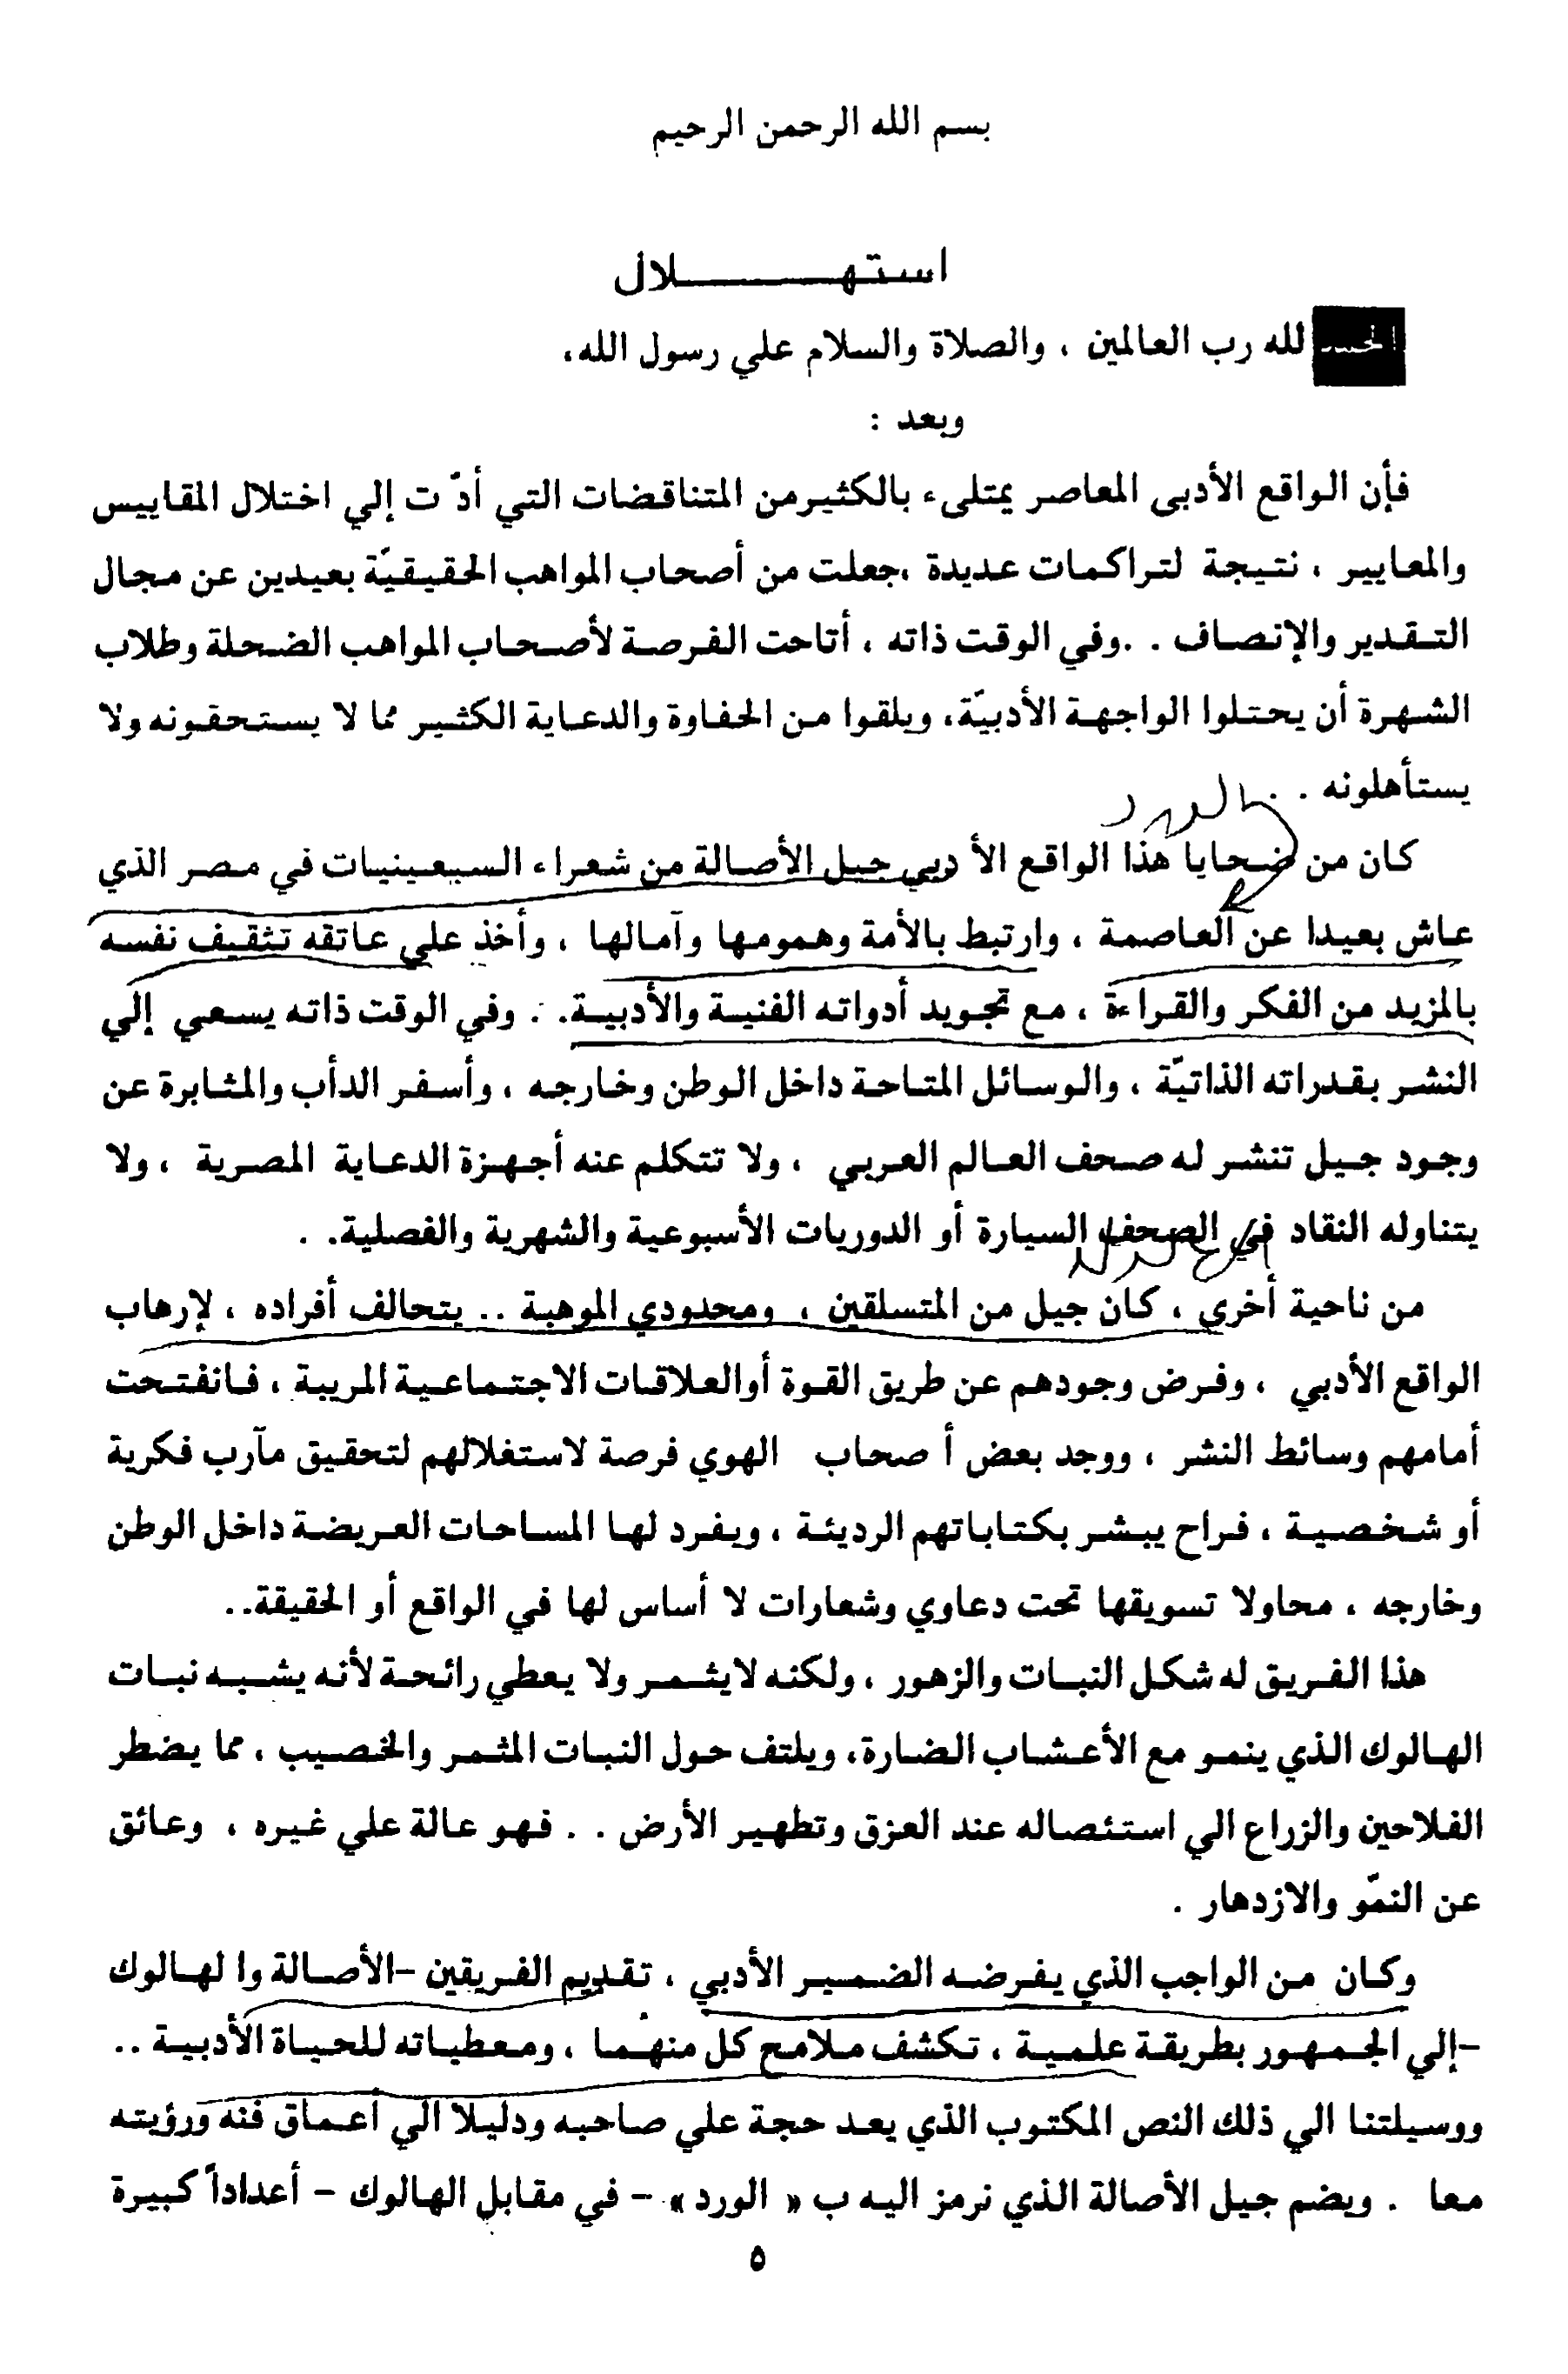 بسم الله الرحمن الرحيم
استهـــــلال
الحمد لله رب العالمين ، والصلاة والسلام علي رسول الله،
وبعد :
فإن الواقع الأدبى المعاصر يمتلىء بالكثيرمن المتناقضات التي أدّ ت إلي اختلال المقاييس
والمعايير ، نتيجة لتراكمات عديدة ،جعلت من أصحاب المواهب الحقيقيّة بعيدين عن مجال
التقدير والإنصاف . .وفي الوقت ذاته ، أتاحت الفرصة لأصحاب المواهب الضحلة وطلاب
الشهرة أن يحتلوا الواجهة الأدبيّة، ويلقوا من الحفاوة والدعاية الكثير مما لا يستحقونه ولا
يستأهلونه . .
الورد
كان من ضحايا هذا الواقع الأ دبي جيل الأصالة من شعراء السبعينيات في مصر الذي
عاش بعيدا عن العاصمة ، وارتبط بالأمة وهمومها وآمالها ، وأخذ علي عاتقه تثقيف نفسه
بالمزيد من الفكر والقراءة ، مع تجويد أدواته الفنية والأدبية. . وفي الوقت ذاته يسعي إلي
النشر بقدراته الذاتيّة ، والوسائل المتاحة داخل الوطن وخارجه ، وأسفر الدأب والمثابرة عن
وجود جيل تنشر له صحف العالم العربي ، ولا تتكلم عنه أجهزة الدعاية المصرية ، ولا
يتناوله النقاد في الصحف السيارة أو الدوريات الأسبوعية والشهرية والفصلية. .
من ناحية أخري ، كان جيل من المتسلقين ، ومحدودي الموهبة .. يتحالف أفراده ، لإرهاب
الواقع الأدبي ، وفرض وجودهم عن طريق القوة أوالعلاقات الاجتماعية المريبة ، فانفتحت
أمامهم وسائط النشر ، ووجد بعض أ صحاب الهوي فرصة لاستغلالهم لتحقيق مآرب فكرية
أو شخصية ، فراح يبشر بكتاباتهم الرديئة ، ويفرد لها المساحات العريضة داخل الوطن
وخارجه ، محاولا تسويقها تحت دعاوي وشعارات لا أساس لها في الواقع أو الحقيقة..
هذا الفريق له شكل النبات والزهور ، ولكنه لايثمر ولا يعطي رائحة لأنه يشبه نبات
الهالوك الذي ينمو مع الأعشاب الضارة، ويلتف حول النبات المثمر والخصيب ، مما يضطر
الفلاحين والزراع الي استئصاله عند العزق وتطهير الأرض . . فهو عالة علي غيره ، وعائق
عن النموّ والازدهار .
وكان من الواجب الذي يفرضه الضمير الأدبي ، تقديم الفريقين -الأصالة وا لهالوك
-إلي الجمهور بطريقة علمية ، تكشف ملامح كل منهما ، ومعطياته للحياة الأدبية ..
ووسيلتنا الي ذلك النص المكتوب الذي يعد حجة علي صاحبه ودليلا الي أعماق فنه ورؤيته
معا . ويضم جيل الأصالة الذي نرمز اليه ب « الورد » - في مقابل الهالوك - أعداداً كبيرة
٥